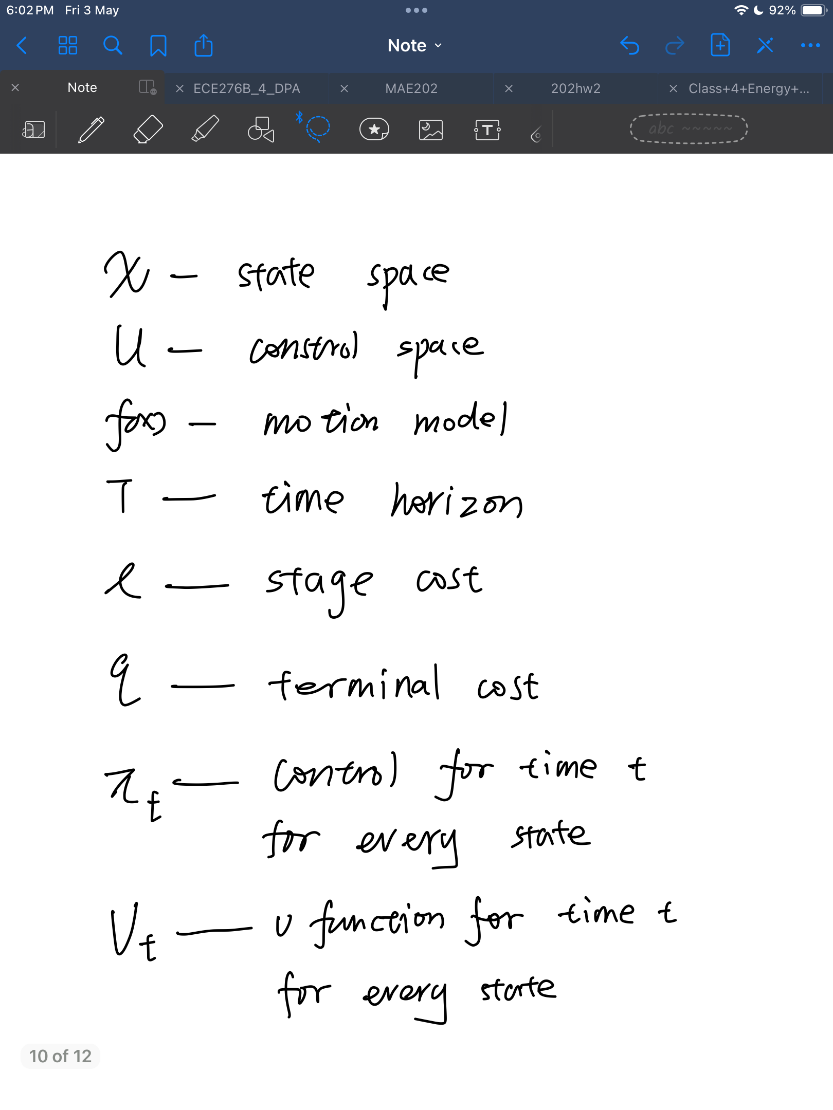 6:02 PM Fri 3 May 92%
Note
Note ECE276B_4_DPA MAE202 202hw2 Class+4+Energy+...
abc
X – state space
U – constrol space
f(x) – motion model
T — time horizon
ℓ — stage cost
q — terminal cost
π_t — control for time t
for every state
V_t — v function for time t
for every state
10 of 12